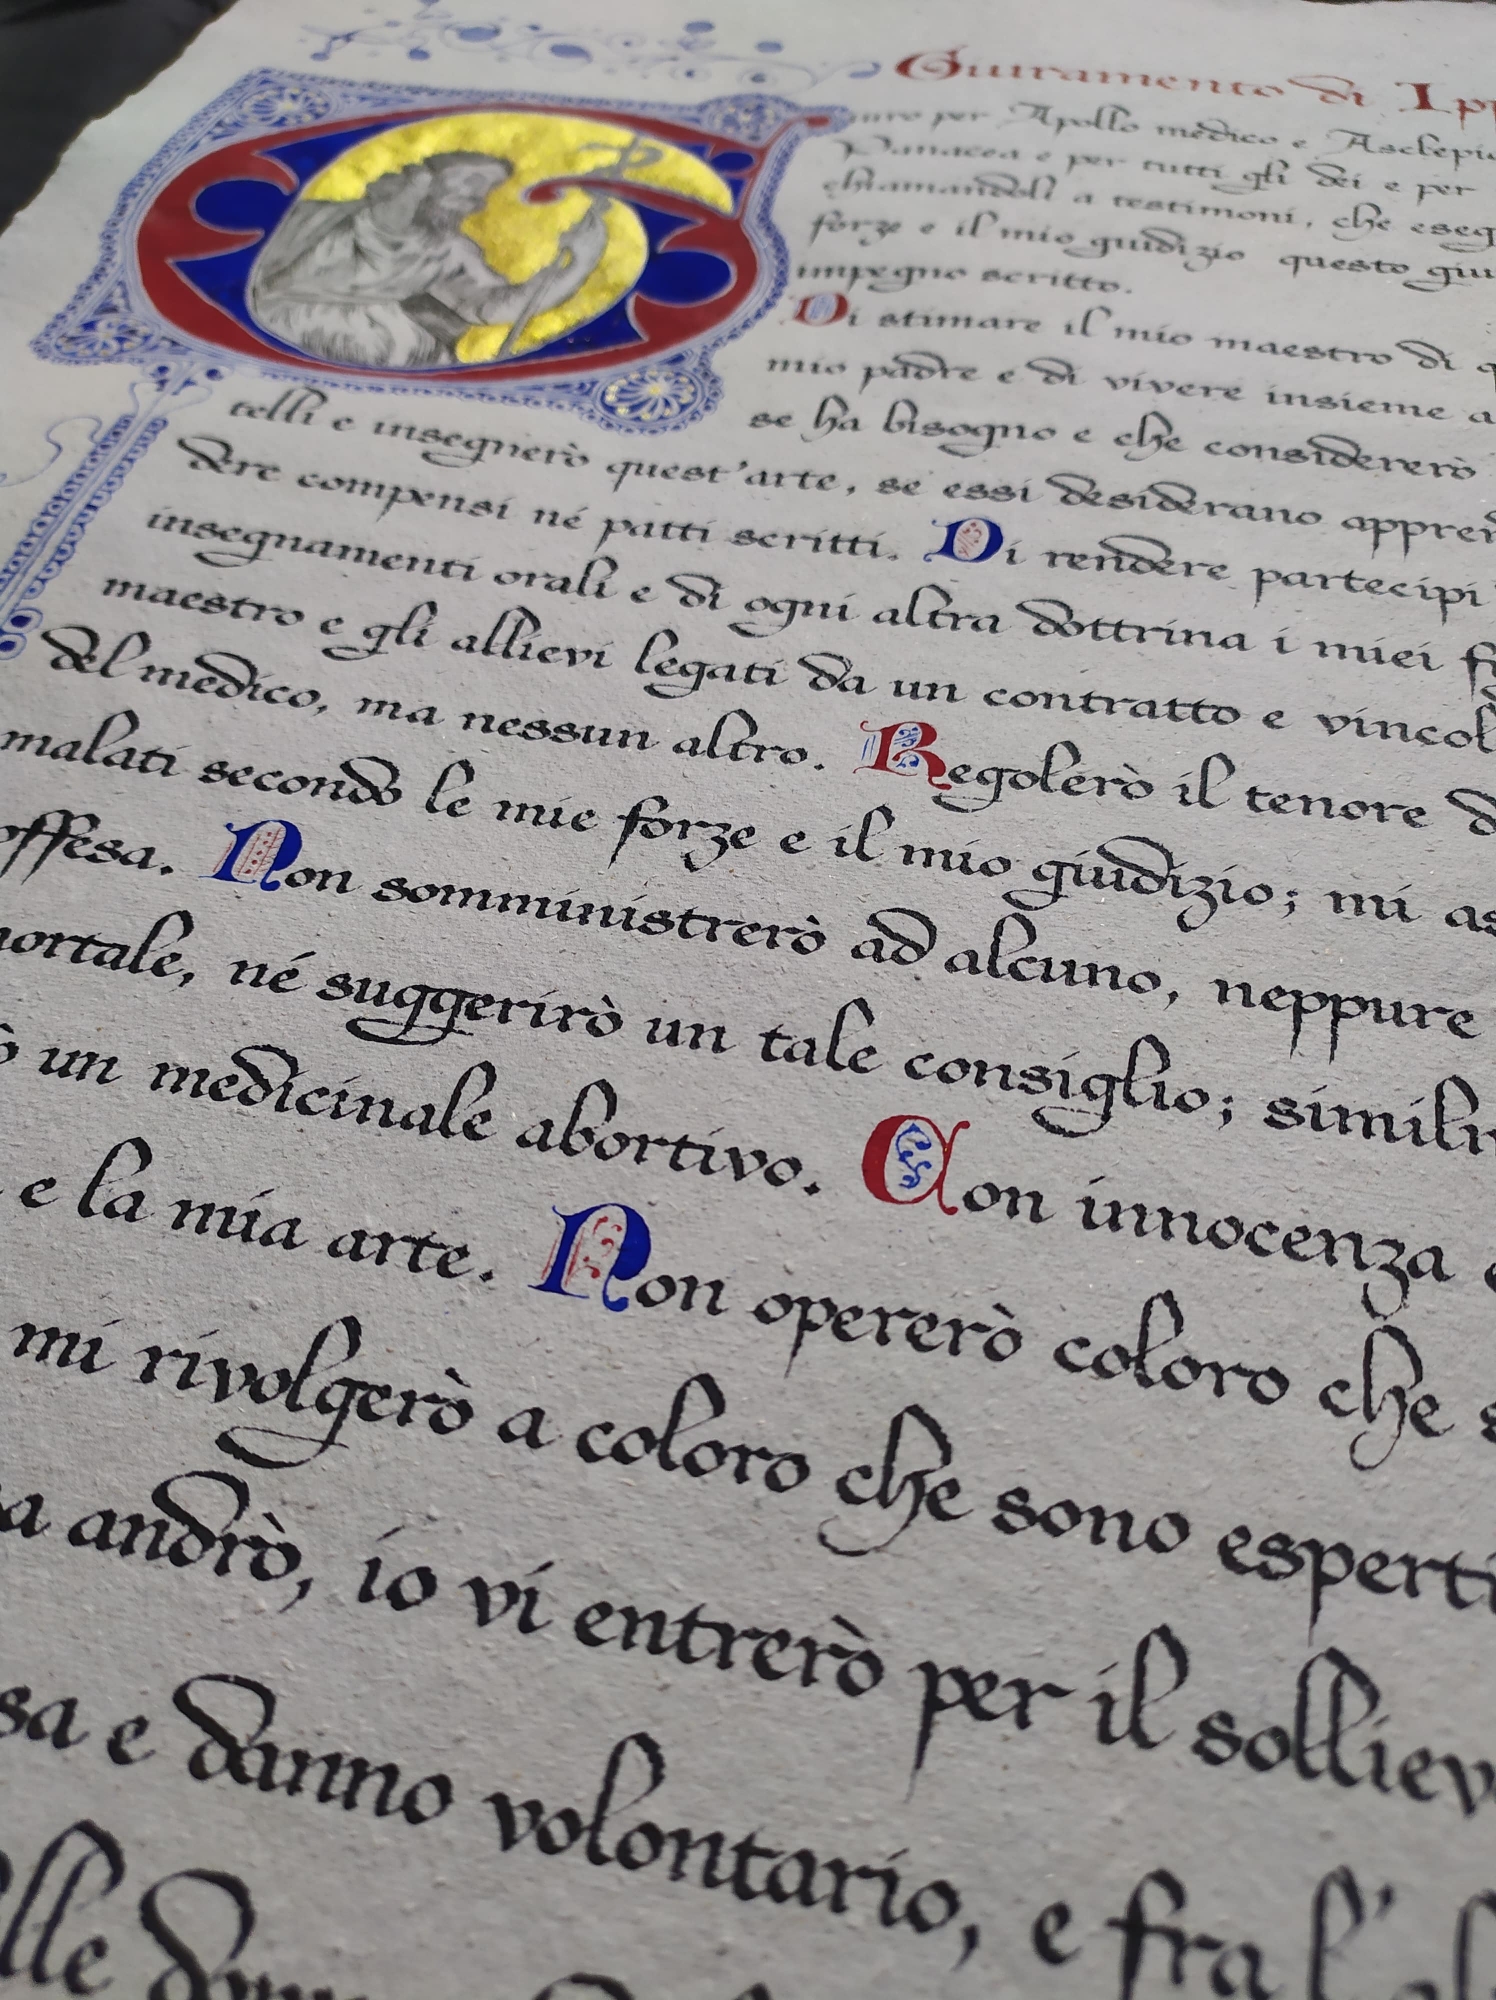 Giuramento di
uro per Apollo medico e Asclepio
Panacea e per tutti gli dei e per
chiamandoli a testimoni, che eseg
forze e il mio giudizio questo giu
impegno scritto.
Di stimare il mio maestro di q
mio padre e di vivere insieme a
se ha bisogno e che considererò
telli e insegnerò quest'arte, se essi desiderano appren
dere compensi né patti scritti. Di rendere partecipi
insegnamenti orali e di ogni altra dottrina i miei fi
maestro e gli allievi legati da un contratto e vincol
del medico, ma nessun altro. Regolerò il tenore d
malati secondo le mie forze e il mio giudizio; mi as
offesa. Non somministrerò ad alcuno, neppure
mortale, né suggerirò un tale consiglio; simil
ò un medicinale abortivo. Con innocenza e
e la mia arte. Non opererò coloro che s
mi rivolgerò a coloro che sono esperti
a andrò, io vi entrerò per il solliev
sa e danno volontario, e fra l'al
lle